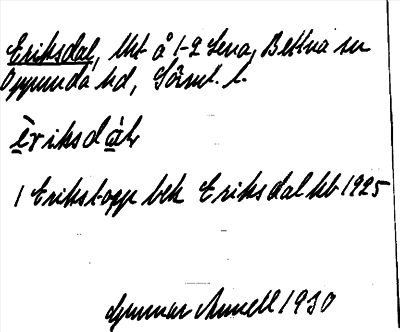 Eriksdal, lht å 1-2 Lena, Bettna sn
Oppunda hd, Sörml. l.
èriksdà̱l
1 Erikstorp bek Eriksdal lht 1925
Gunnar Linnell 1930